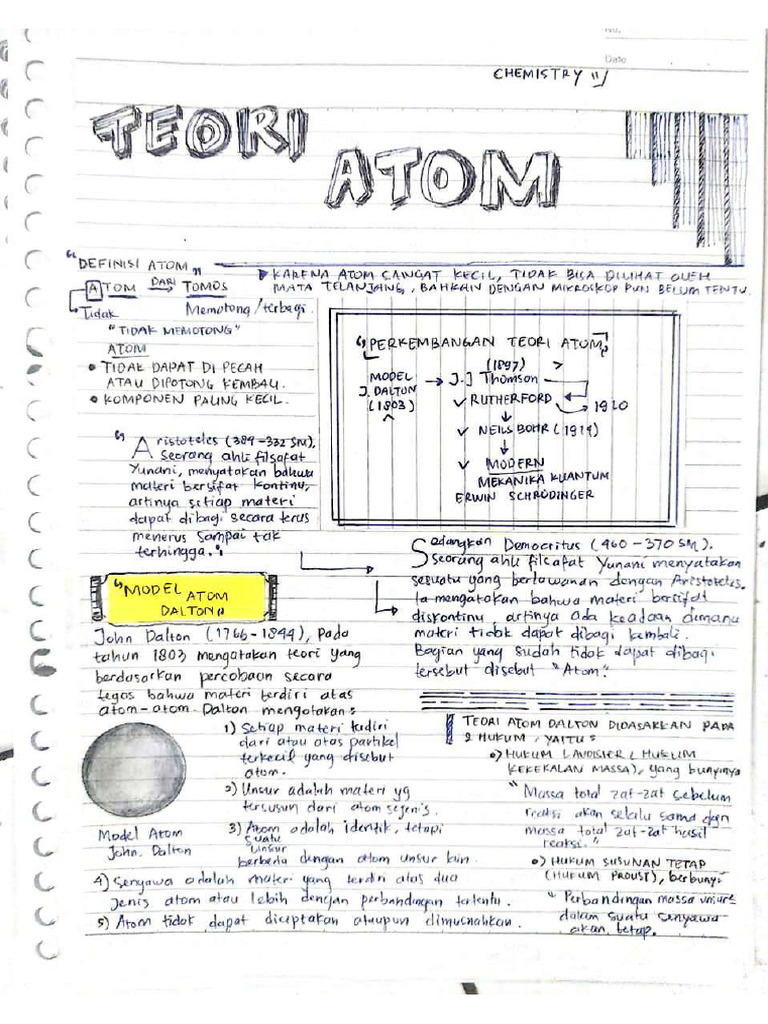 No.
Date
CHEMISTRY
TEORI
ATOM
"DEFINISI ATOM"
ATOM DARI TOMOS
Tidak Memotong/terbagi.
"TIDAK MEMOTONG"
ATOM
• TIDAK DAPAT DI PECAH
ATAU DIPOTONG KEMBALI.
• KOMPONEN PALING KECIL.
KARENA ATOM SANGAT KECIL, TIDAK BISA DILIHAT OLEH
MATA TELANJANG, BAHKAN DENGAN MIKROSKOP PUN BELUM TENTU.
"PERKEMBANGAN TEORI ATOM"
MODEL
J. DALTON
(1803)
(1897)
J.J Thomson
RUTHERFORD
1910
NEILS BOHR (1914)
MODERN
MEKANIKA KUANTUM
ERWIN SCHRÖDINGER
"Aristoteles (384-332 SM).
Seorang ahli filsafat
Yunani, menyatakan bahwa
materi bersifat kontinu,
artinya setiap materi
dapat dibagi secara terus
menerus sampai tak
terhingga."
Sedangkan Democritus (460-370 SM).
Seorang ahli filsafat Yunani menyatakan
sesuatu yang berlawanan dengan Aristoteles.
Ia mengatakan bahwa materi bersifat
diskontinu artinya ada keadaan dimana
materi tidak dapat dibagi kembali.
Bagian yang sudah tidak dapat dibagi
tersebut disebut "Atom".
"MODEL ATOM
DALTON"
John Dalton (1766-1844), Pada
tahun 1803 mengatakan teori yang
berdasarkan percobaan secara
tegas bahwa materi terdiri atas
atom-atom. Dalton mengatakan:
Model Atom
John. Dalton
1) Setiap materi terdiri
dari atau atas partikel
terkecil yang disebut
atom.
2) Unsur adalah materi yg
tersusun dari atom sejenis.
3) Atom suatu unsur adalah identik, tetapi
berbeda dengan atom unsur lain.
4) Senyawa adalah materi yang terdiri atas dua
Jenis atom atau lebih dengan perbandingan tertentu.
5) Atom tidak dapat diciptakan ataupun dimusnahkan.
TEORI ATOM DALTON DIDASARKAN PADA
2 HUKUM, YAITU:
•) HUKUM LAVOISIER (HUKUM
KEKEKALAN MASSA), yang bunyinya
"Massa total zat-zat sebelum
reaksi akan selalu sama dgn
massa total zat-zat hasil
reaksi."
•) HUKUM SUSUNAN TETAP
(HUKUM PROUST), berbunyi
"Perbandingan massa unsur2
dalam suatu senyawa
akan tetap.